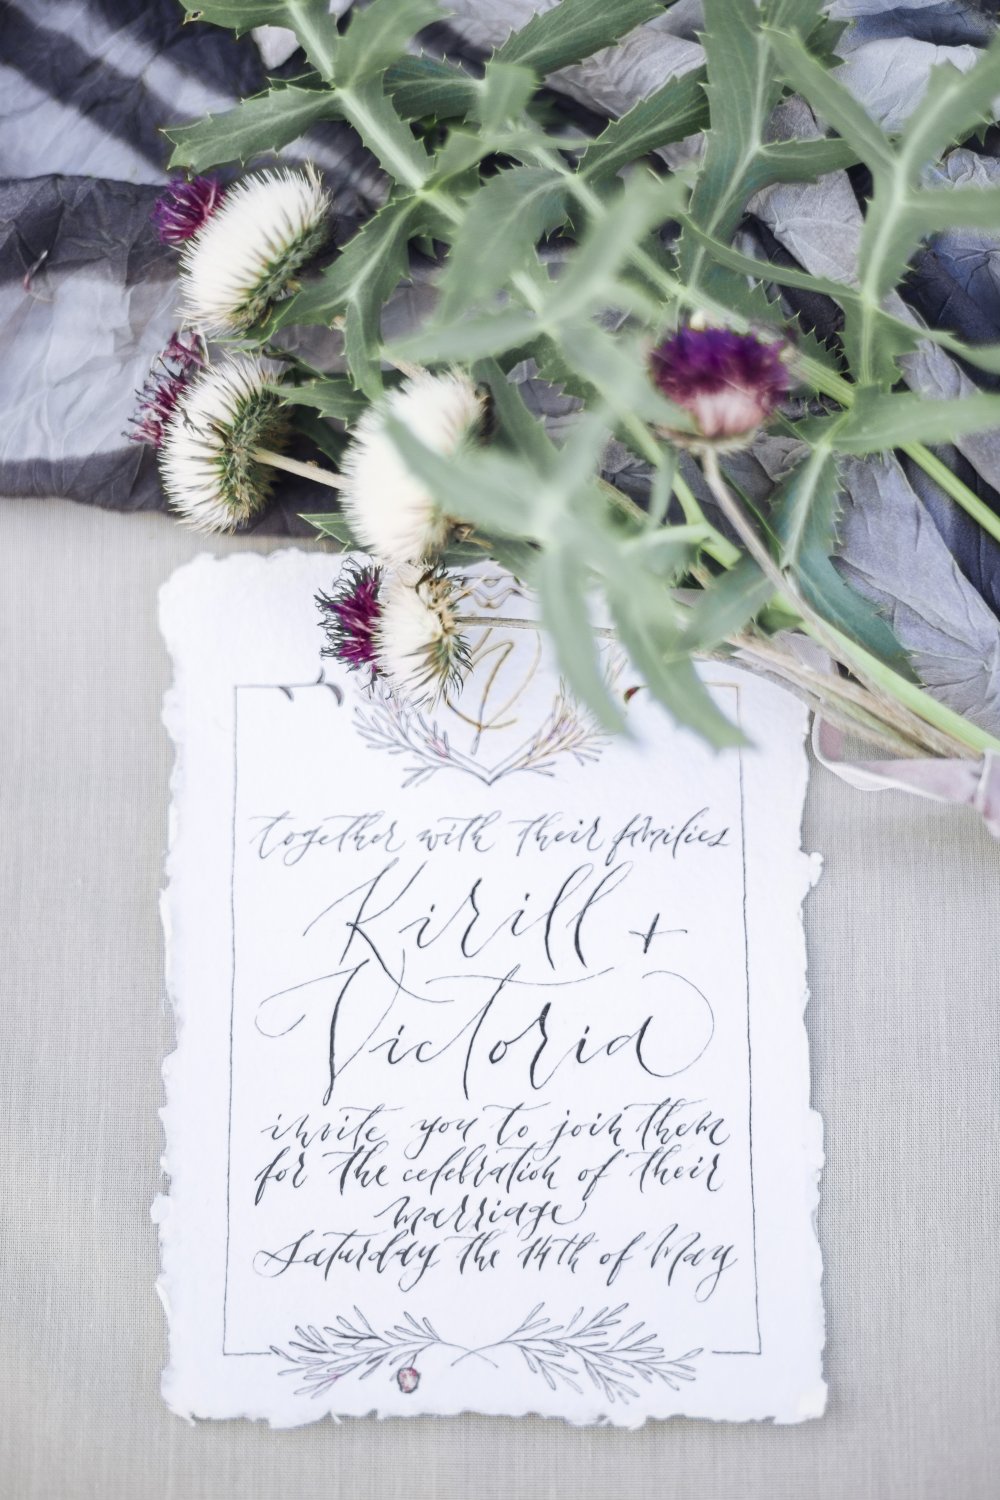 together with their families
Kirill +
Victoria
invite you to join them
for the celebration of their
marriage
Saturday the 14th of May